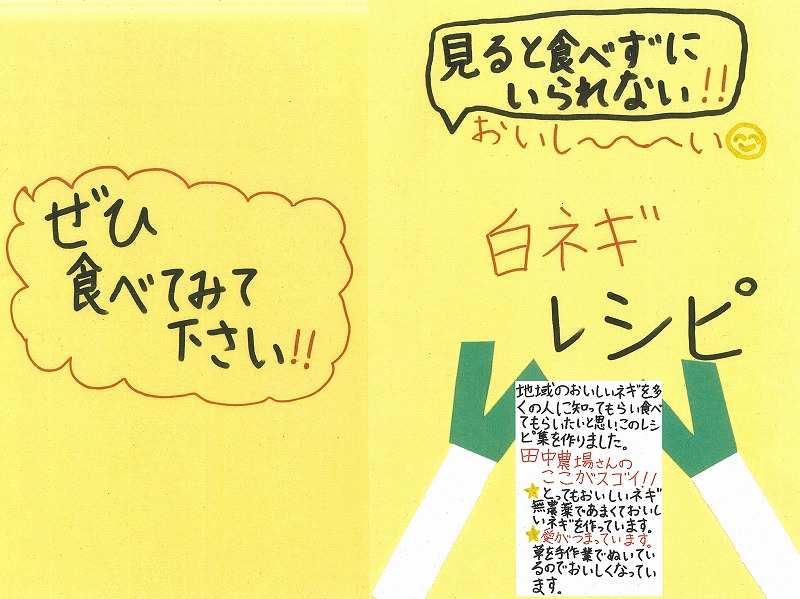 ぜひ
食べてみて
下さい!!
見ると食べずに
いられない!!
おいし〜〜〜い
白ネギ
レシピ
地域のおいしいネギを多
くの人に知ってもらい食べ
てもらいたいと思いこのレシ
ピ集を作りました。
田中農場さんの
ここがスゴイ!!
とってもおいしいネギ
無農薬であまくておいし
いネギを作っています。
愛がつまっています。
草を手作業でぬいてい
るのでおいしくなってい
ます。